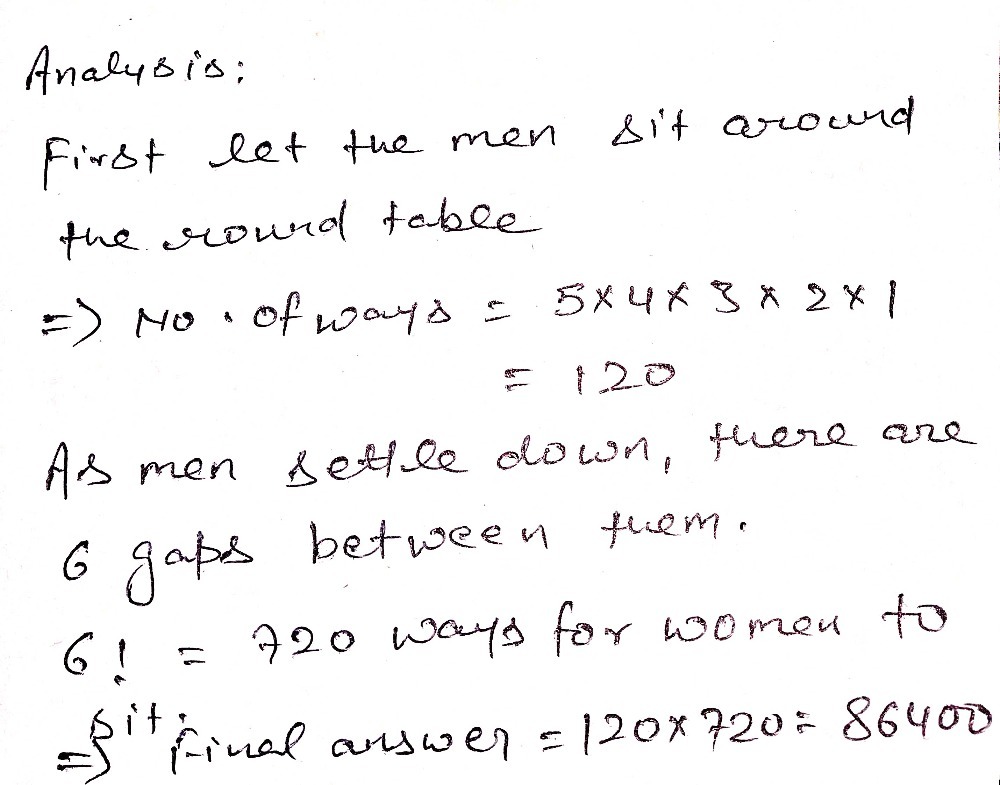 Analysis:
First let the men sit around
the round table
=> No. of ways = 5×4×3×2×1
= 120
As men settle down, there are
6 gaps between them.
6! = 720 ways for women to
sit.
=> Final answer = 120×720= 86400